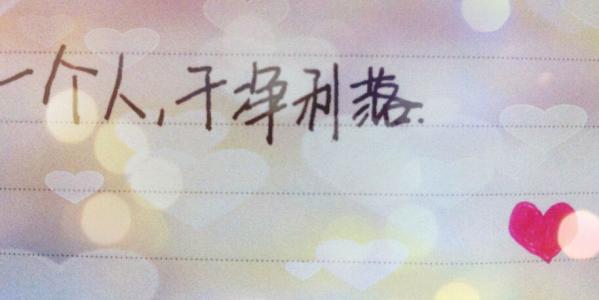 一个人,干净利落.